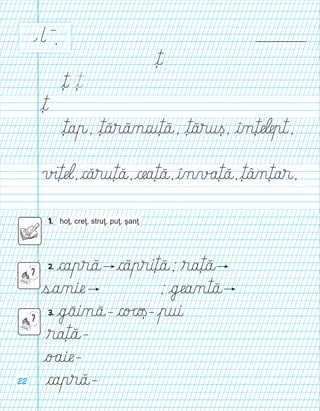 ț
ț ț
ț
țap, țărănuță, țăruș, înțelept,
vițel, căruță, ceață, învață, țânțar,
1. hoț, creț, struț, puț, șanț
2. capră → căpriță ; rață →
sanie → ; geantă →
3. găină - cocoș - pui
rață -
oaie -
capră -
22